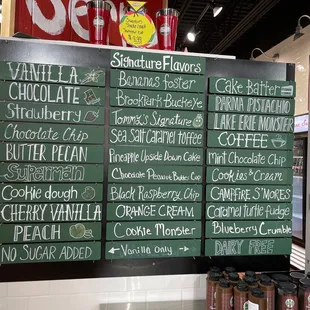 Signature Flavors
VANILLA
CHOCOLATE
Strawberry
Chocolate Chip
BUTTER PECAN
Superman
Cookie dough
CHERRY VANILLA
PEACH
NO SUGAR ADDED
Bananas foster
Brooktyn Buckeye
Tommy's Signature
Sea Salt Caramel Toffee
Pineapple Upside Down Cake
Chocolate Peanut Butter Cup
Black Raspberry Chip
ORANGE CREAM
Cookie Monster
Vanilla Only
Cake Batter
PARMA PISTACHIO
LAKE ERIE MONSTER
COFFEE
Mint Chocolate Chip
Cookies & Cream
CAMPFIRE S'MORES
Caramel Turtle Fudge
Blueberry Crumble
DAIRY FREE